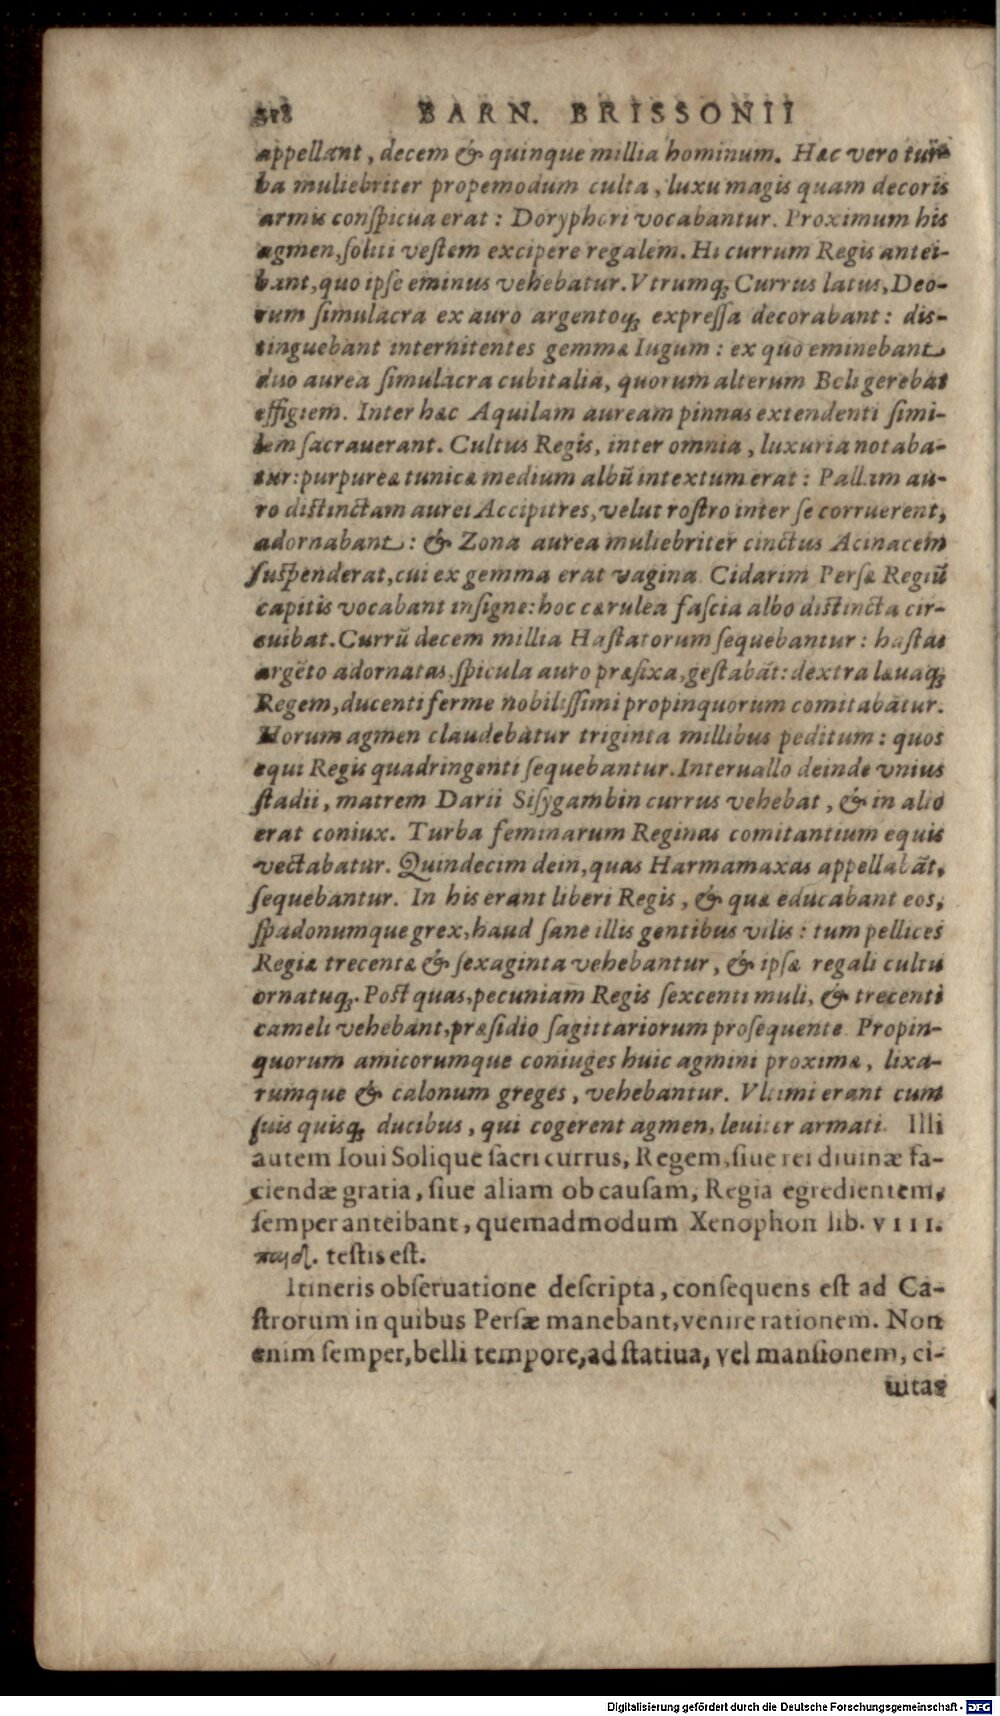 318 BARN. BRISSONII
appellant, decem & quinque millia hominum. Hæc vero tur-
ba muliebriter propemodum culta, luxu magis quam decoris
armis conſpicua erat: Doryphori vocabantur. Proximum his
agmen, ſoliti veſtem excipere regalem. Hi currum Regis antei-
bant, quo ipſe eminus vehebatur. Vtrumq; Currus latus, Deo-
rum ſimulacra ex auro argentoq; expreſſa decorabant: dis-
tinguebant internitentes gemmæ Iugum: ex quo eminebant
duo aurea ſimulacra cubitalia, quorum alterum Beli gerebat
effigiem. Inter hæc Aquilam auream pinnas extendenti ſimi-
lem ſacrauerant. Cultus Regis, inter omnia, luxuria notaba-
tur: purpureæ tunicæ medium albū intextum erat: Pallam au-
ro diſtinctam aurei Accipitres, velut roſtro inter ſe corruerent,
adornabant: & Zona aurea muliebriter cinctus Acinacem
ſuſpenderat, cui ex gemma erat vagina. Cidarim Perſæ Regiū
capitis vocabant inſigne: hoc cærulea faſcia albo diſtincta cir-
cuibat. Currū decem millia Haſtatorum ſequebantur: haſtas
argēto adornatas, ſpicula auro præfixa, geſtabāt: dextra læuaq;
Regem, ducenti ferme nobiliſſimi propinquorum comitabātur.
Horum agmen claudebatur triginta millibus peditum: quos
equi Regis quadringenti ſequebantur. Interuallo deinde vnius
ſtadii, matrem Darii Siſygambin currus vehebat, & in alio
erat coniux. Turba feminarum Reginas comitantium equis
vectabatur. Quindecim dein, quas Harmamaxas appellabāt,
ſequebantur. In his erant liberi Regis, & quæ educabant eos,
ſpadonumque grex, haud ſane illis gentibus vilis: tum pellices
Regiæ trecentæ & ſexaginta vehebantur, & ipſæ regali cultu
ornatuq;. Poſt quas, pecuniam Regis ſexcenti muli, & trecenti
cameli vehebant, præſidio ſagittariorum proſequente. Propin-
quorum amicorumque coniuges huic agmini proximæ, lixa-
rumque & calonum greges, vehebantur. Vltimi erant cum
ſuis quisq; ducibus, qui cogerent agmen, leuiter armati. Illi
autem Ioui Solique ſacri currus, Regem, ſiue rei diuinæ fa-
ciendæ gratia, ſiue aliam ob cauſam, Regia egredientem,
ſemper anteibant, quemadmodum Xenophon lib. VIII.
παιδ. teſtis eſt.
Itineris obſeruatione deſcripta, conſequens eſt ad Ca-
ſtrorum in quibus Perſæ manebant, venire rationem. Non
enim ſemper, belli tempore, ad ſtatiua, vel manſionem, ci-
uitas
Digitalisierung gefördert durch die Deutsche Forschungsgemeinschaft - DFG